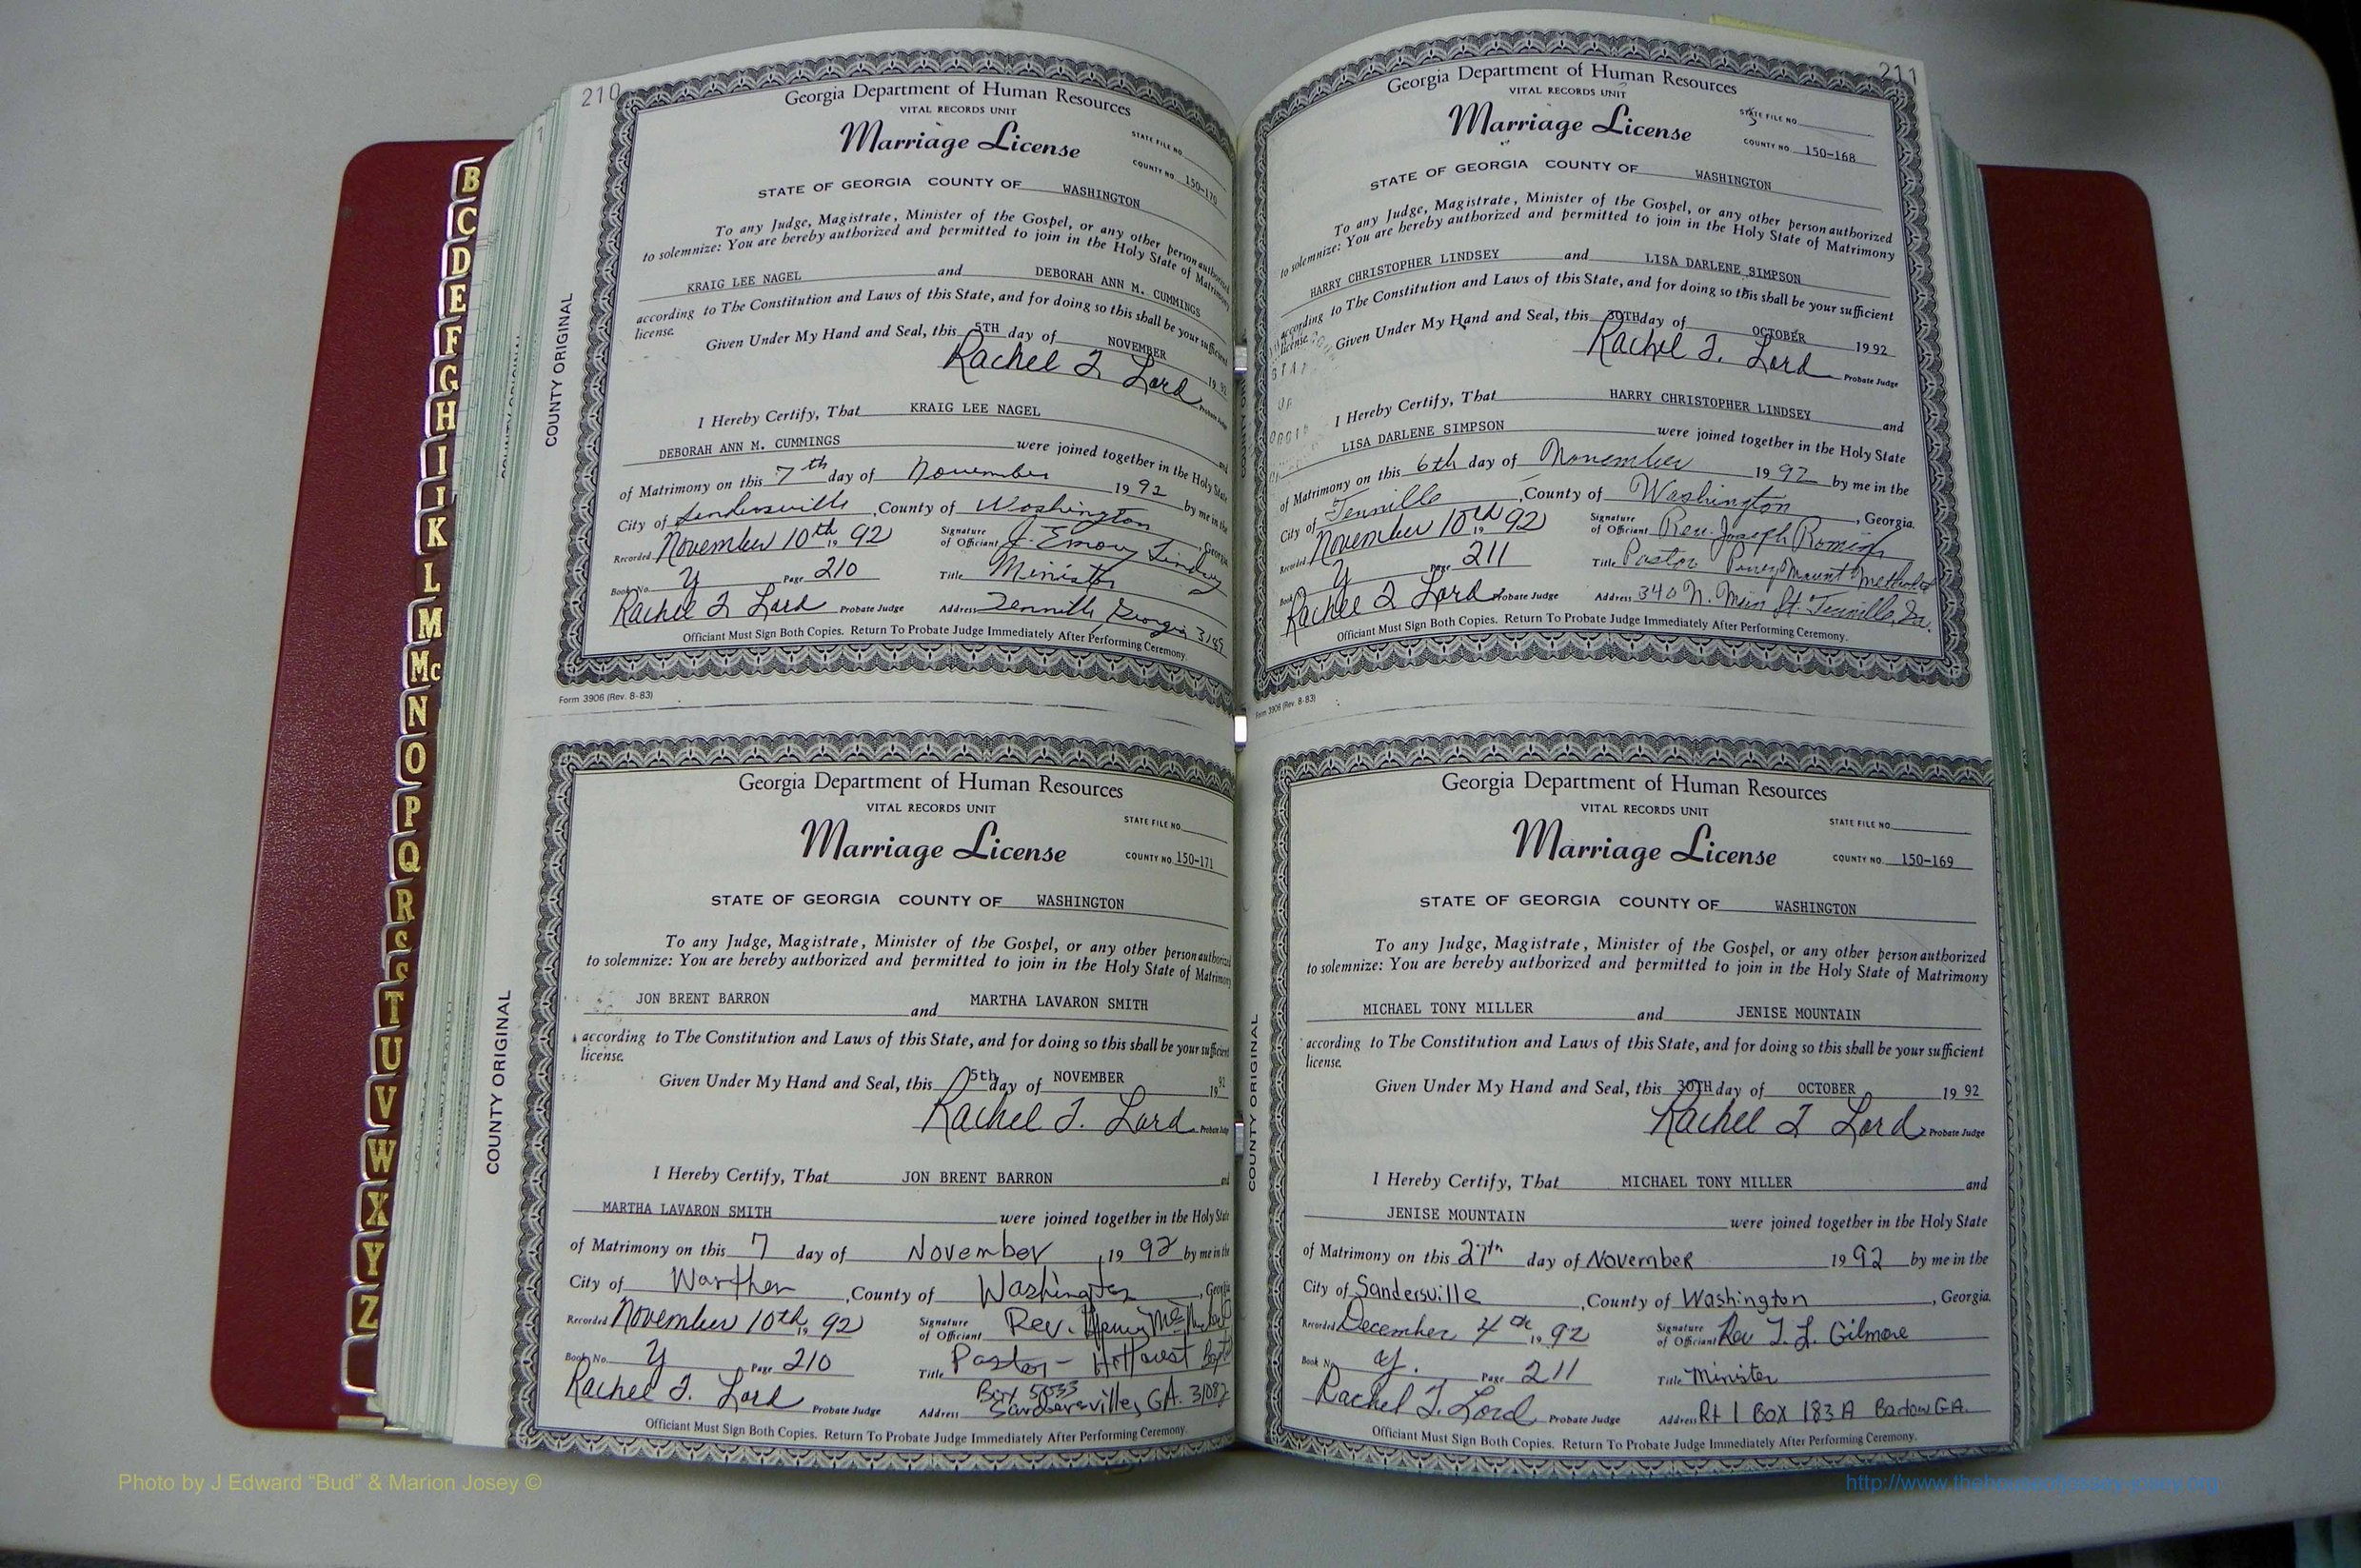 B
C
D
E
F
G
H
I
J
K
L
M
Mc
N
O
P
Q
R
S
T
U
V
W
X
Y
Z
210
COUNTY ORIGINAL
Georgia Department of Human Resources
VITAL RECORDS UNIT
Marriage License
STATE FILE NO.
COUNTY NO. 150-170
STATE OF GEORGIA COUNTY OF WASHINGTON
To any Judge, Magistrate, Minister of the Gospel, or any other person authorized
to solemnize: You are hereby authorized and permitted to join in the Holy State of Matrimony
KRAIG LEE NAGEL and DEBORAH ANN M. CUMMINGS
according to The Constitution and Laws of this State, and for doing so this shall be your sufficient
license.
Given Under My Hand and Seal, this 5TH day of NOVEMBER 1992
Rachel T. Lord Probate Judge
I Hereby Certify, That KRAIG LEE NAGEL and
DEBORAH ANN M. CUMMINGS were joined together in the Holy State
of Matrimony on this 7th day of November 1992 by me in the
City of Sandersville, County of Washington, Georgia
Recorded November 10th, 1992 Signature of Officiant J. Emory Lindsey
Book No. Y Page 210 Title Minister
Rachel T Lord Probate Judge Address Tennille, Georgia
Officiant Must Sign Both Copies. Return To Probate Judge Immediately After Performing Ceremony.
Form 3906 (Rev. 8-83)
COUNTY ORIGINAL
Georgia Department of Human Resources
VITAL RECORDS UNIT
Marriage License
STATE FILE NO.
COUNTY NO. 150-171
STATE OF GEORGIA COUNTY OF WASHINGTON
To any Judge, Magistrate, Minister of the Gospel, or any other person authorized
to solemnize: You are hereby authorized and permitted to join in the Holy State of Matrimony
JON BRENT BARRON and MARTHA LAVARON SMITH
according to The Constitution and Laws of this State, and for doing so this shall be your sufficient
license.
Given Under My Hand and Seal, this 5th day of NOVEMBER 1992
Rachel T. Lord Probate Judge
I Hereby Certify, That JON BRENT BARRON and
MARTHA LAVARON SMITH were joined together in the Holy State
of Matrimony on this 7 day of November, 1992 by me in the
City of Warthen, County of Washington, Georgia
Recorded November 10th, 1992 Signature of Officiant Rev. Henry
Book No. Y Page 210 Title Pastor -
Rachel T. Lord Probate Judge Address Box 5033
Sandersville, GA. 31082
Officiant Must Sign Both Copies. Return To Probate Judge Immediately After Performing Ceremony.
211
Georgia Department of Human Resources
VITAL RECORDS UNIT
Marriage License
STATE FILE NO.
COUNTY NO. 150-168
STATE OF GEORGIA COUNTY OF WASHINGTON
To any Judge, Magistrate, Minister of the Gospel, or any other person authorized
to solemnize: You are hereby authorized and permitted to join in the Holy State of Matrimony
HARRY CHRISTOPHER LINDSEY and LISA DARLENE SIMPSON
according to The Constitution and Laws of this State, and for doing so this shall be your sufficient
license.
Given Under My Hand and Seal, this 30TH day of OCTOBER 1992
Rachel T. Lord Probate Judge
I Hereby Certify, That HARRY CHRISTOPHER LINDSEY and
LISA DARLENE SIMPSON were joined together in the Holy State
of Matrimony on this 6th day of November 1992 by me in the
City of Tennille, County of Washington, Georgia.
Recorded November 10th 1992 Signature of Officiant Rev. Joseph
Book No. Y Page 211 Title Pastor
Rachel T Lord Probate Judge Address 340 N. Main St. Tennille, Ga.
Officiant Must Sign Both Copies. Return To Probate Judge Immediately After Performing Ceremony.
Form 3906 (Rev. 8-83)
COUNTY ORIGINAL
Georgia Department of Human Resources
VITAL RECORDS UNIT
Marriage License
STATE FILE NO.
COUNTY NO. 150-169
STATE OF GEORGIA COUNTY OF WASHINGTON
To any Judge, Magistrate, Minister of the Gospel, or any other person authorized
to solemnize: You are hereby authorized and permitted to join in the Holy State of Matrimony
MICHAEL TONY MILLER and JENISE MOUNTAIN
according to The Constitution and Laws of this State, and for doing so this shall be your sufficient
license.
Given Under My Hand and Seal, this 30TH day of OCTOBER 1992
Rachel T Lord Probate Judge
I Hereby Certify, That MICHAEL TONY MILLER and
JENISE MOUNTAIN were joined together in the Holy State
of Matrimony on this 27th day of November 1992 by me in the
City of Sandersville, County of Washington, Georgia.
Recorded December 4th 1992 Signature of Officiant Rev T. L. Gilmore
Book No. Y. Page 211 Title Minister
Rachel T. Lord Probate Judge Address Rt 1 Box 183 A Bartow GA.
Officiant Must Sign Both Copies. Return To Probate Judge Immediately After Performing Ceremony.
Photo by J Edward “Bud” & Marion Josey ©
http://www.thehouseofjosey-josey.org